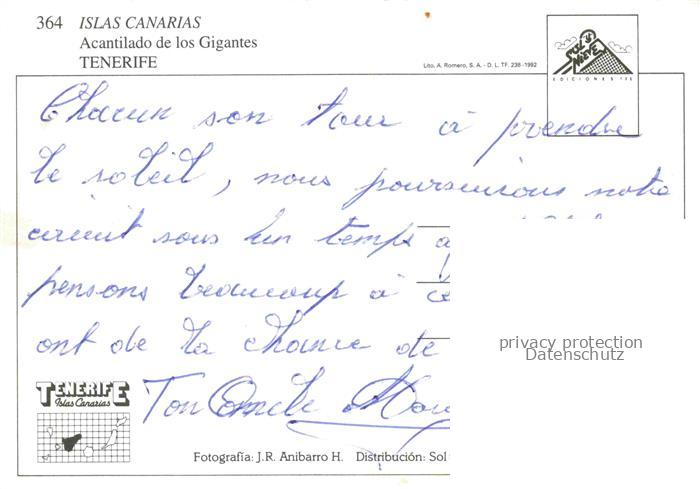 364 ISLAS CANARIAS
Acantilado de los Gigantes
TENERIFE
Lito. A. Romero, S. A. - D. L. TF. 238 -1992
SOL Y NIEVE
EDICIONES
Chacun son tour à prendre
le soleil, nous poursuivons notre
circuit sous un temps
pensons beaucoup à ce
ont de la chance de
privacy protection
Datenschutz
TENERIFE
Islas Canarias
Ton Oncle
Fotografía: J.R. Anibarro H. Distribución: Sol